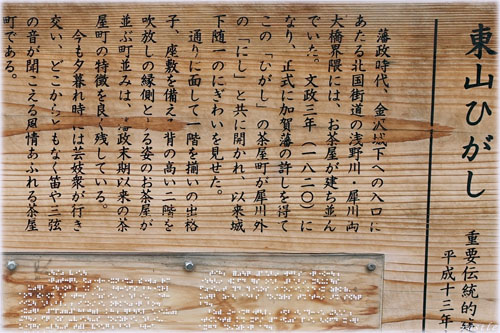 東山ひがし
重要伝統的
平成十三年
藩政時代、金沢城下への入口に
あたる北国街道の浅野川・犀川両
大橋界隈には、お茶屋が建ち並ん
でいた。文政三年(一八二〇)に
なり、正式に加賀藩の許しを得て
この「ひがし」の茶屋町が犀川外
の「にし」と共に開かれ、以来城
下随一のにぎわいを見せた。
通りに面して一階を揃いの出格
子、座敷を備え、背の高い二階を
吹放しの縁側とする姿のお茶屋が
並ぶ町並みは、藩政末期以来の茶
屋町の特徴を良く残している。
今も夕暮れ時には芸妓衆が行き
交い、どこからともなく笛や三弦
の音が聞こえる風情あふれる茶屋
町である。